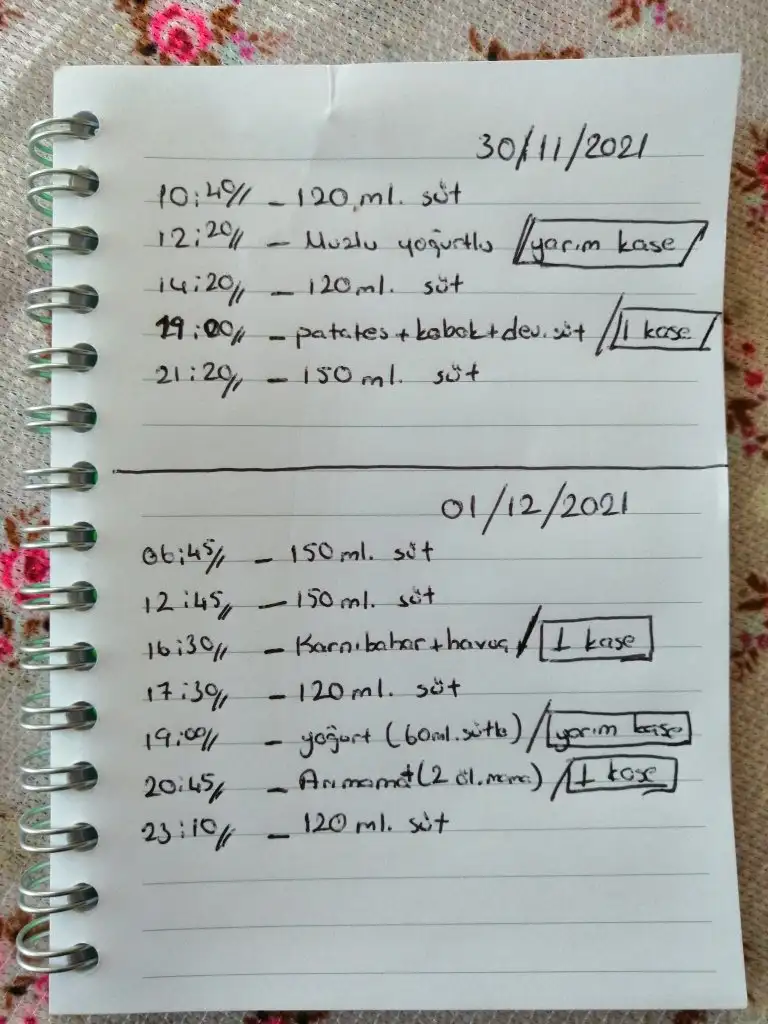 30/11/2021
10:40// - 120 ml. süt
12:20// - Muzlu yoğurtlu / yarım kase /
14:20// - 120 ml. süt
19:00// - patates + kabak + dev. süt / 1 kase /
21:20// - 150 ml. süt
01/12/2021
06:45// - 150 ml. süt
12:45// - 150 ml. süt
16:30// - Karnıbahar + havuç / 1 kase
17:30// - 120 ml. süt
19:00// - yoğurt (60 ml. sütlü) / yarım kase
20:45// - Arımama + (2 öl. mama) / 1 kase
23:10// - 120 ml. süt